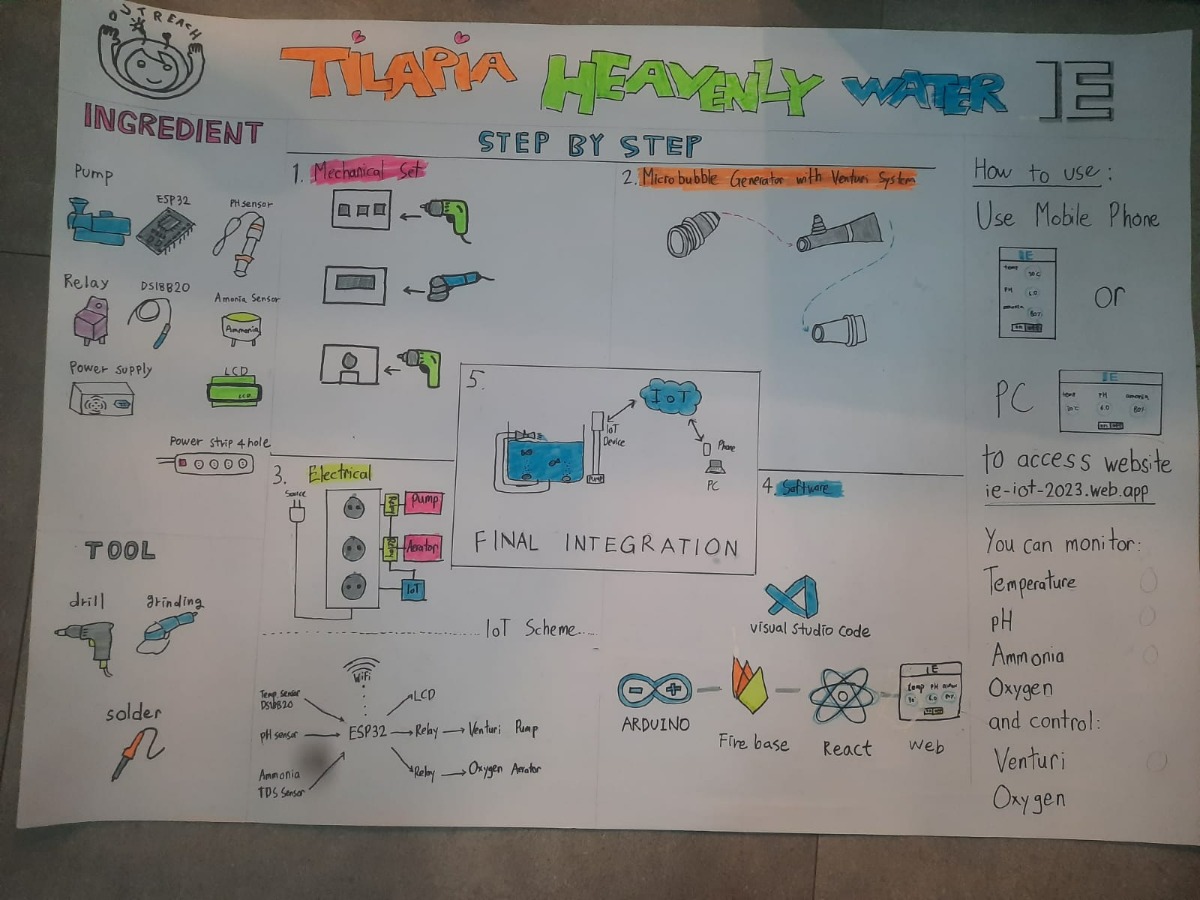 OUTREACH
TILAPIA HEAVENLY WATER IE
INGREDIENT
Pump
ESP32
PH sensor
Relay
DS18B20
Amonia Sensor
Ammonia
Power supply
LCD
LCD
Power strip 4 hole
TOOL
drill
grinding
solder
STEP BY STEP
1. Mechanical Set
2. Microbubble Generator with Venturi System
3. Electrical
Source
Relay
Pump
Relay
Aerator
IoT
IoT Scheme
WiFi
Temp sensor
DS18B20
pH sensor
Ammonia
TDS Sensor
ESP32
LCD
Relay
Venturi Pump
Relay
Oxygen Aerator
4. Software
Visual Studio Code
ARDUINO
Fire base
React
IE
web
5.
IoT
IoT
Device
Pump
Phone
PC
FINAL INTEGRATION
How to use:
Use Mobile Phone
IE
or
PC
IE
to access website
ie-iot-2023.web.app
You can monitor:
Temperature
pH
Ammonia
Oxygen
and control:
Venturi
Oxygen